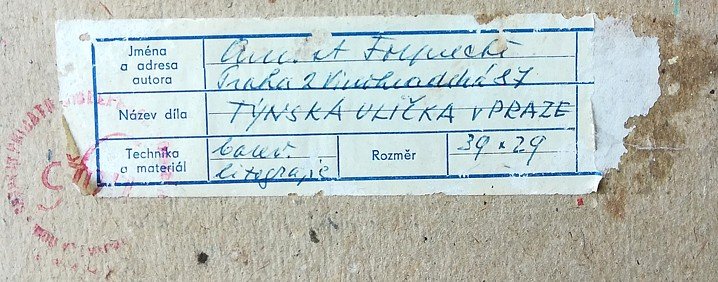 Jména
a adresa
autora
Praha 2 Vinohradská 87
Název díla
TÝNSKÁ ULIČKA V PRAZE
Technika
a materiál
barev.
litografie
Rozměr
39 x 29